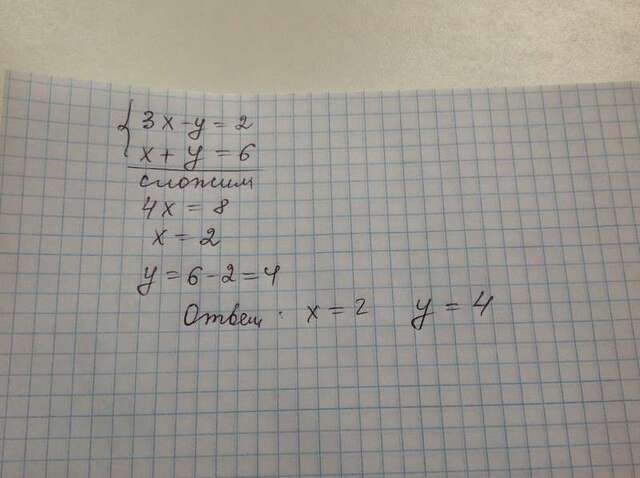 3x-y=2
x+y=6
сложим
4x=8
x=2
y=6-2=4
Ответ: x=2 y=4